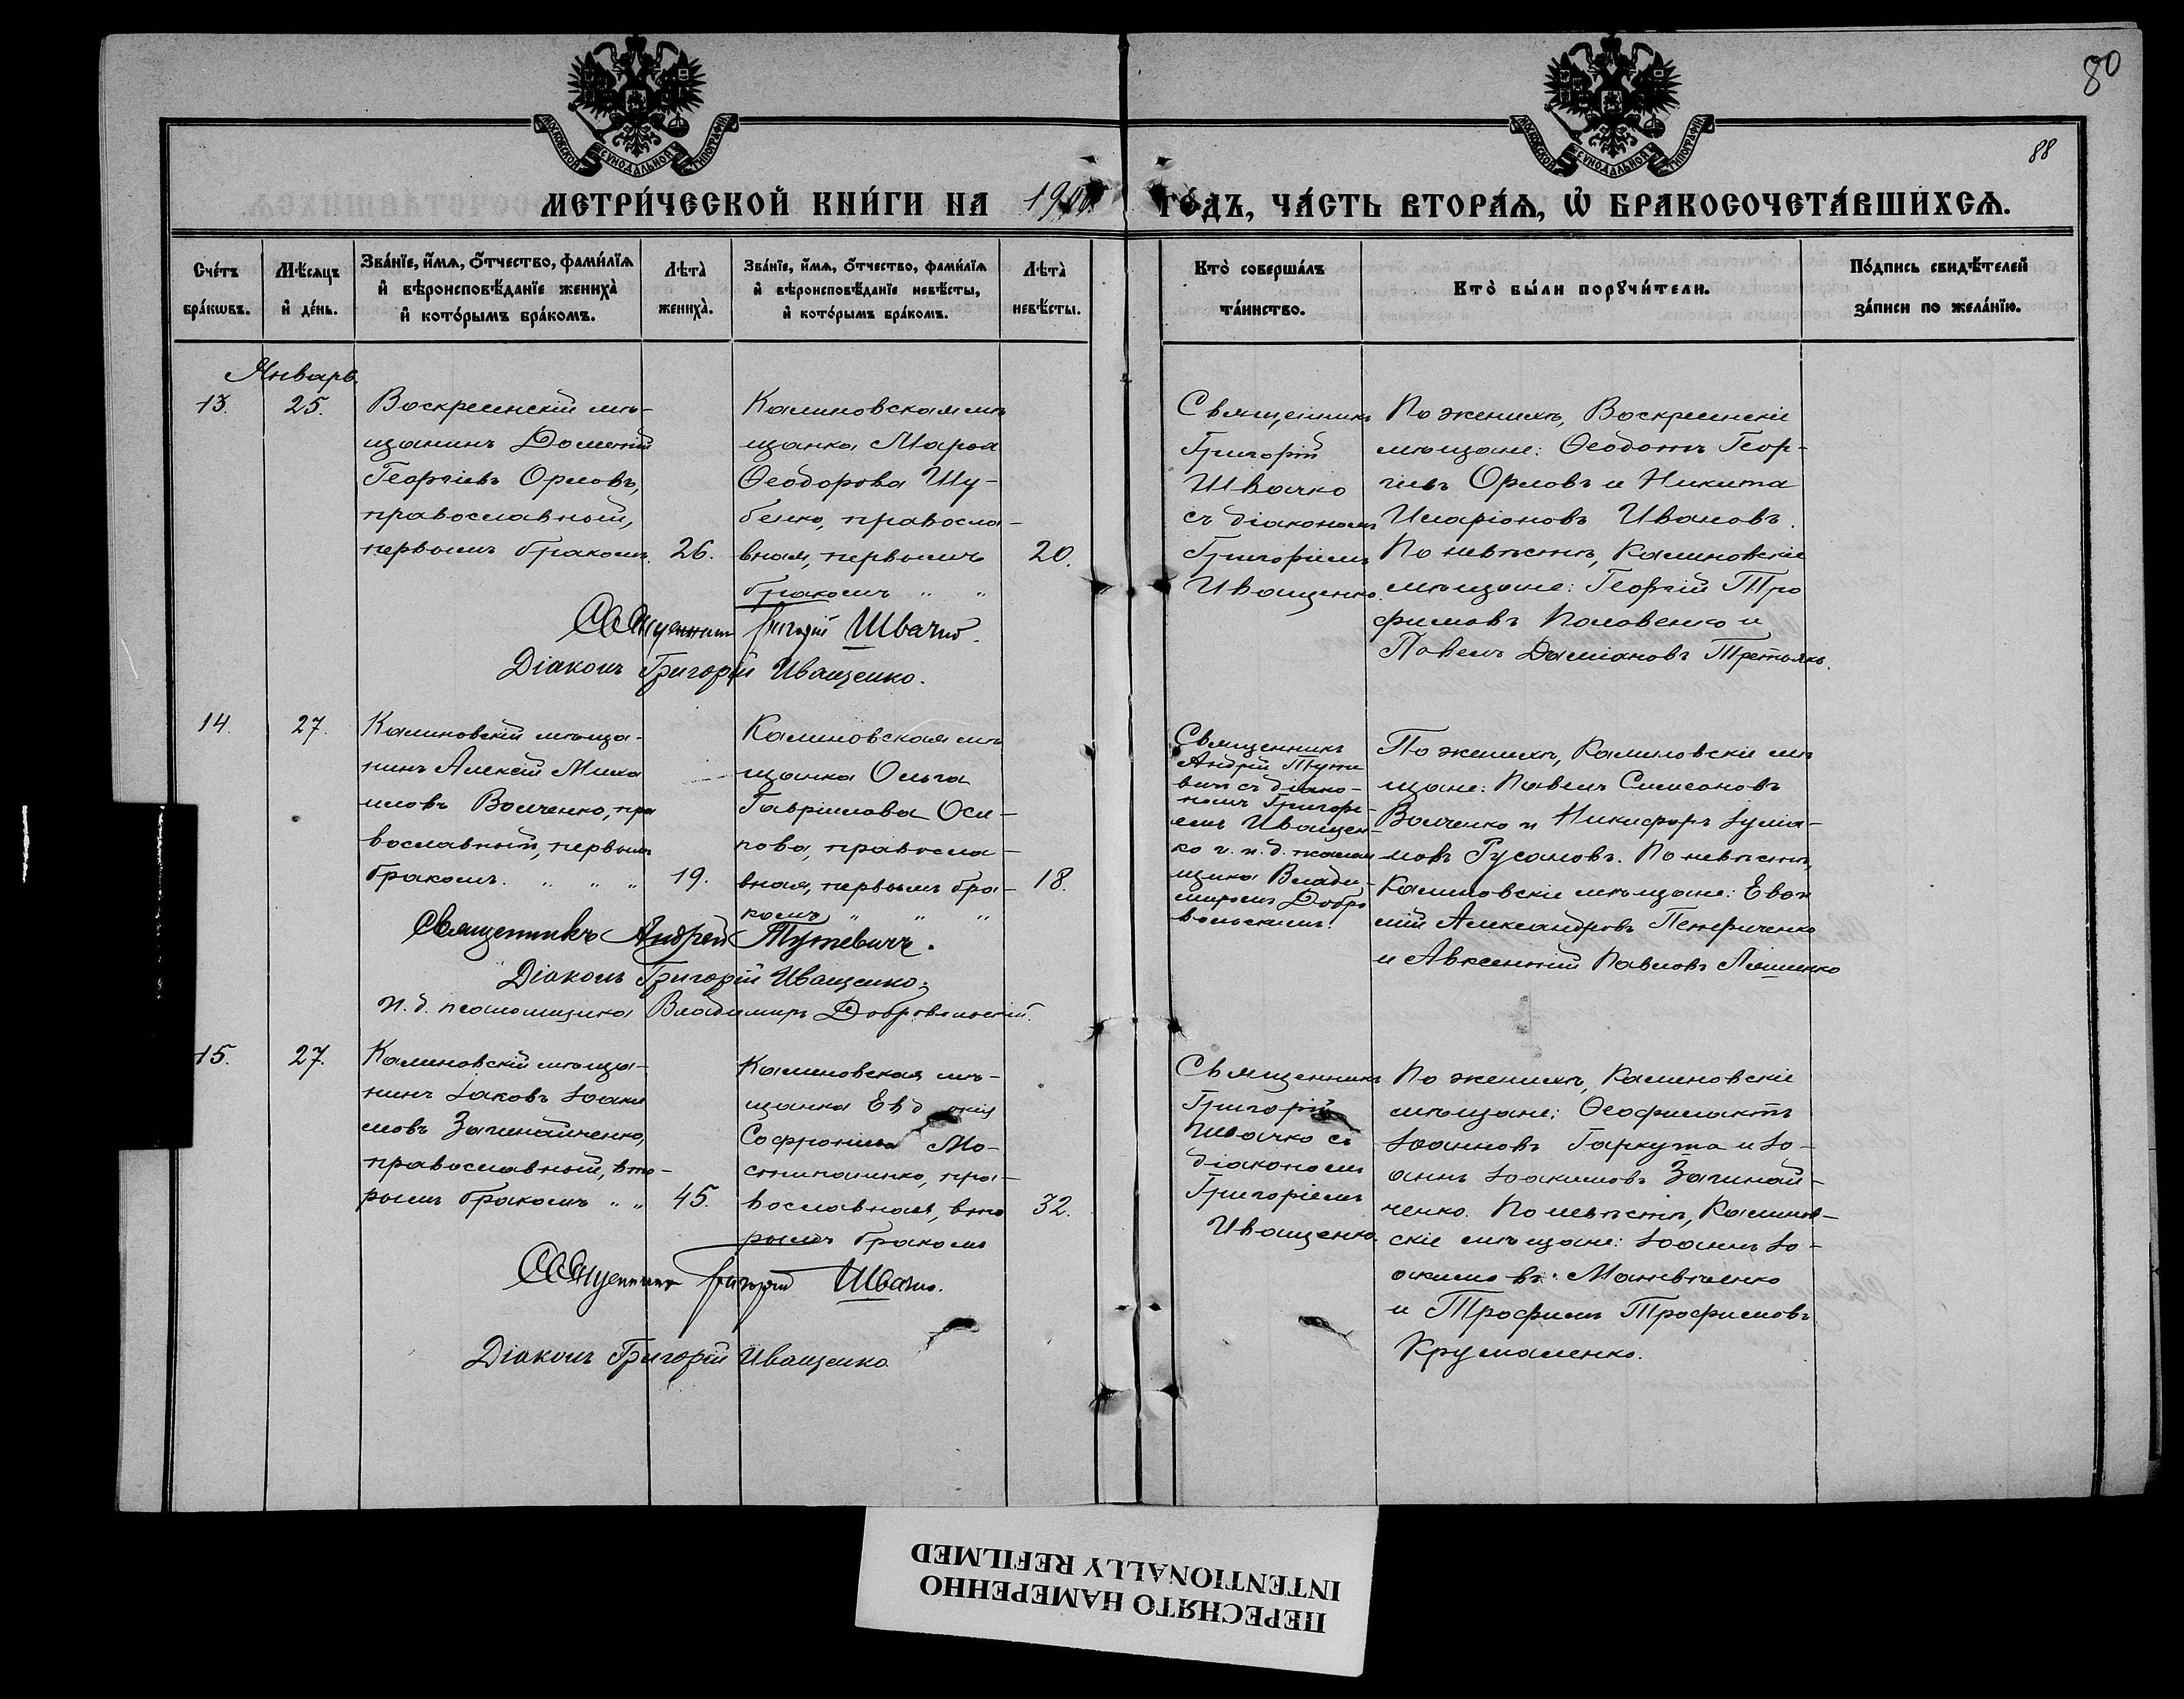 80
88
МОСКОВСКОЙ СѴНОДАЛЬНОЙ ТИПОГРАФІИ
МОСКОВСКОЙ СѴНОДАЛЬНОЙ ТИПОГРАФІИ
МЕТРИ́ЧЕСКОЙ КНИ́ГИ НА 190 ГО́ДЪ, ЧА́СТЬ ВТОРА́Ѧ, Ѡ҆ БРАКОСОЧЕТА́ВШИХСѦ.
Сче́тъ бра́кѡвъ.
Мѣ́сѧцъ и҆ де́нь.
Зва́нїе, и҆́мѧ, ѻ҆́тчество, фами́лїѧ
и҆ вѣроисповѣ́данїе жениха̀
и҆ кото́рымъ бра́комъ.
Лѣта̀ жениха̀.
Зва́нїе, и҆́мѧ, ѻ҆́тчество, фами́лїѧ
и҆ вѣроисповѣ́данїе невѣ́сты,
и҆ кото́рымъ бра́комъ.
Лѣта̀ невѣ́сты.
Кто̀ соверша́лъ та́инство.
Кто̀ бы́ли порꙋчи́тели.
По́дпись свидѣ́телей за́писи по жела́нїю.
Январь
13.
25.
Воскресенскій мѣ-
щанинъ Дометій
Георгіевъ Орловъ,
православный,
первымъ бракомъ.
26.
Калиновская мѣ
щанка Марѳа
Ѳеодорова Шу-
бенко, правосла-
вная, первымъ
бракомъ " "
20.
Священникъ
Григорій
Швачко
съ діакономъ
Григоріемъ
Иващенко.
По женихѣ, Воскресенскіе
мѣщане: Ѳеодотъ Геор-
гіевъ Орловъ и Никита
Иларіоновъ Ивановъ.
По невѣстѣ, Калиновскіе
мѣщане: Георгій Тро
фимовъ Половенко и
Павелъ Даміановъ Третьякъ.
Священникъ Григорій Швачко.
Діаконъ Григорій Иващенко.
14.
27.
Калиновскій мѣща-
нинъ Алексій Миха
иловъ Волченко, пра
вославный, первымъ
бракомъ. " " "
19.
Калиновская мѣ
щанка Ольга
Гавріилова Оси-
пова, правосла-
вная, первымъ бра-
комъ " " "
18.
Священникъ
Андрей Туте
вичъ съ діако-
номъ Григорі-
емъ Иващен-
ко и и. д. псалом
щика Влади-
миромъ Добро
вольскимъ.
По женихѣ, Калиновскіе мѣ
щане: Павелъ Симеоновъ
Волченко и Никифоръ Іуліа-
новъ Русановъ. По невѣстѣ,
Калиновскіе мѣщане: Евѳи
мій Александровъ Петриченко
и Авксентій Павловъ Ляшенко
Священникъ Андрей Тутевичъ.
Діаконъ Григорій Иващенко.
И. д. псаломщика Владимиръ Добровольскій.
15.
27.
Калиновскій мѣща-
нинъ Іаковъ Іоаки
мовъ Загинайченко,
православный, вто-
рымъ бракомъ " "
45.
Калиновская мѣ-
щанка Евдокія
Софроніева Мо-
, пра-
вославная, вто
рымъ бракомъ
32.
Священникъ
Григорій
Швачко съ
діакономъ
Григоріемъ
Иващенко.
По женихѣ, Калиновскіе
мѣщане: Ѳеофилактъ
Іоанновъ Гаркуша и Іо-
аннъ Іоакимовъ Загинай-
ченко. По невѣстѣ, Калинов-
скіе мѣщане: Іоаннъ Іо-
акимовъ
и Трофимъ Трофимовъ
Крумаленко.
Священникъ Григорій Швачко.
Діаконъ Григорій Иващенко.
ПЕРЕСНЯТО НАМЕРЕННО
INTENTIONALLY REFILMED